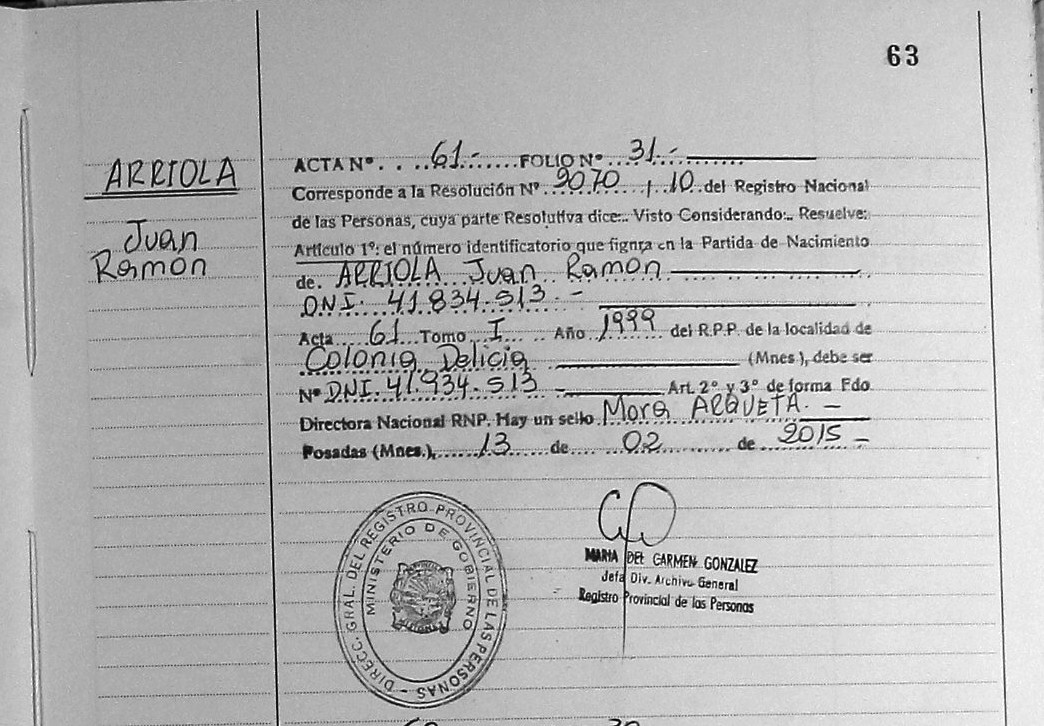 63
ARRIOLA
Juan
Ramón
ACTA Nº . . . 61.-......FOLIO Nº ...31.-
Corresponde a la Resolución Nº ..9070....1.10..del Registro Nacional
de las Personas, cuya parte Resolutiva dice:.. Visto Considerando:.. Resuelve:
Artículo 1º: el número identificatorio que figura en la Partida de Nacimiento
de. ARRIOLA Juan Ramón
DNI. 41.834.513.-
Acta 61 Tomo I Año 1999 del R.P.P. de la localidad de
Colonia Delicia (Mnes ), debe ser
Nº DNI. 41.934.513 - Art. 2º y 3º de forma Fdo
Directora Nacional RNP. Hay un sello Mora ARQUETA. -
Posadas (Mnes.), 13 de 02 de 2015 -
DIRECC. GRAL. DEL REGISTRO PROVINCIAL DE LAS PERSONAS -
MINISTERIO DE GOBIERNO
MISIONES
MARIA DEL CARMEN GONZALEZ
Jefa Div. Archivo General
Registro Provincial de las Personas